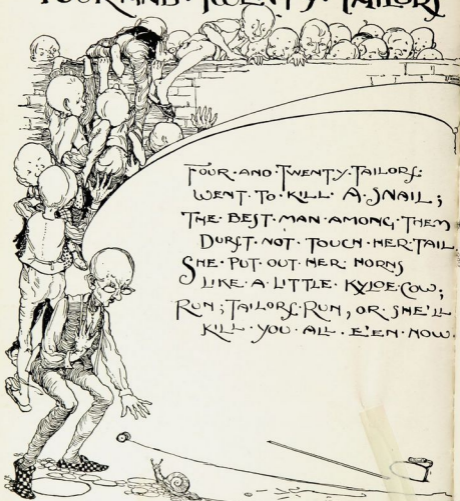 FOUR AND TWENTY TAILORS
FOUR AND TWENTY TAILORS
WENT TO KILL A SNAIL;
THE BEST MAN AMONG THEM
DURST NOT TOUCH HER TAIL
SHE PUT OUT HER HORNS
LIKE A LITTLE KYLOE COW;
RUN; TAILORS RUN, OR SHE'LL
KILL YOU ALL E'EN NOW.